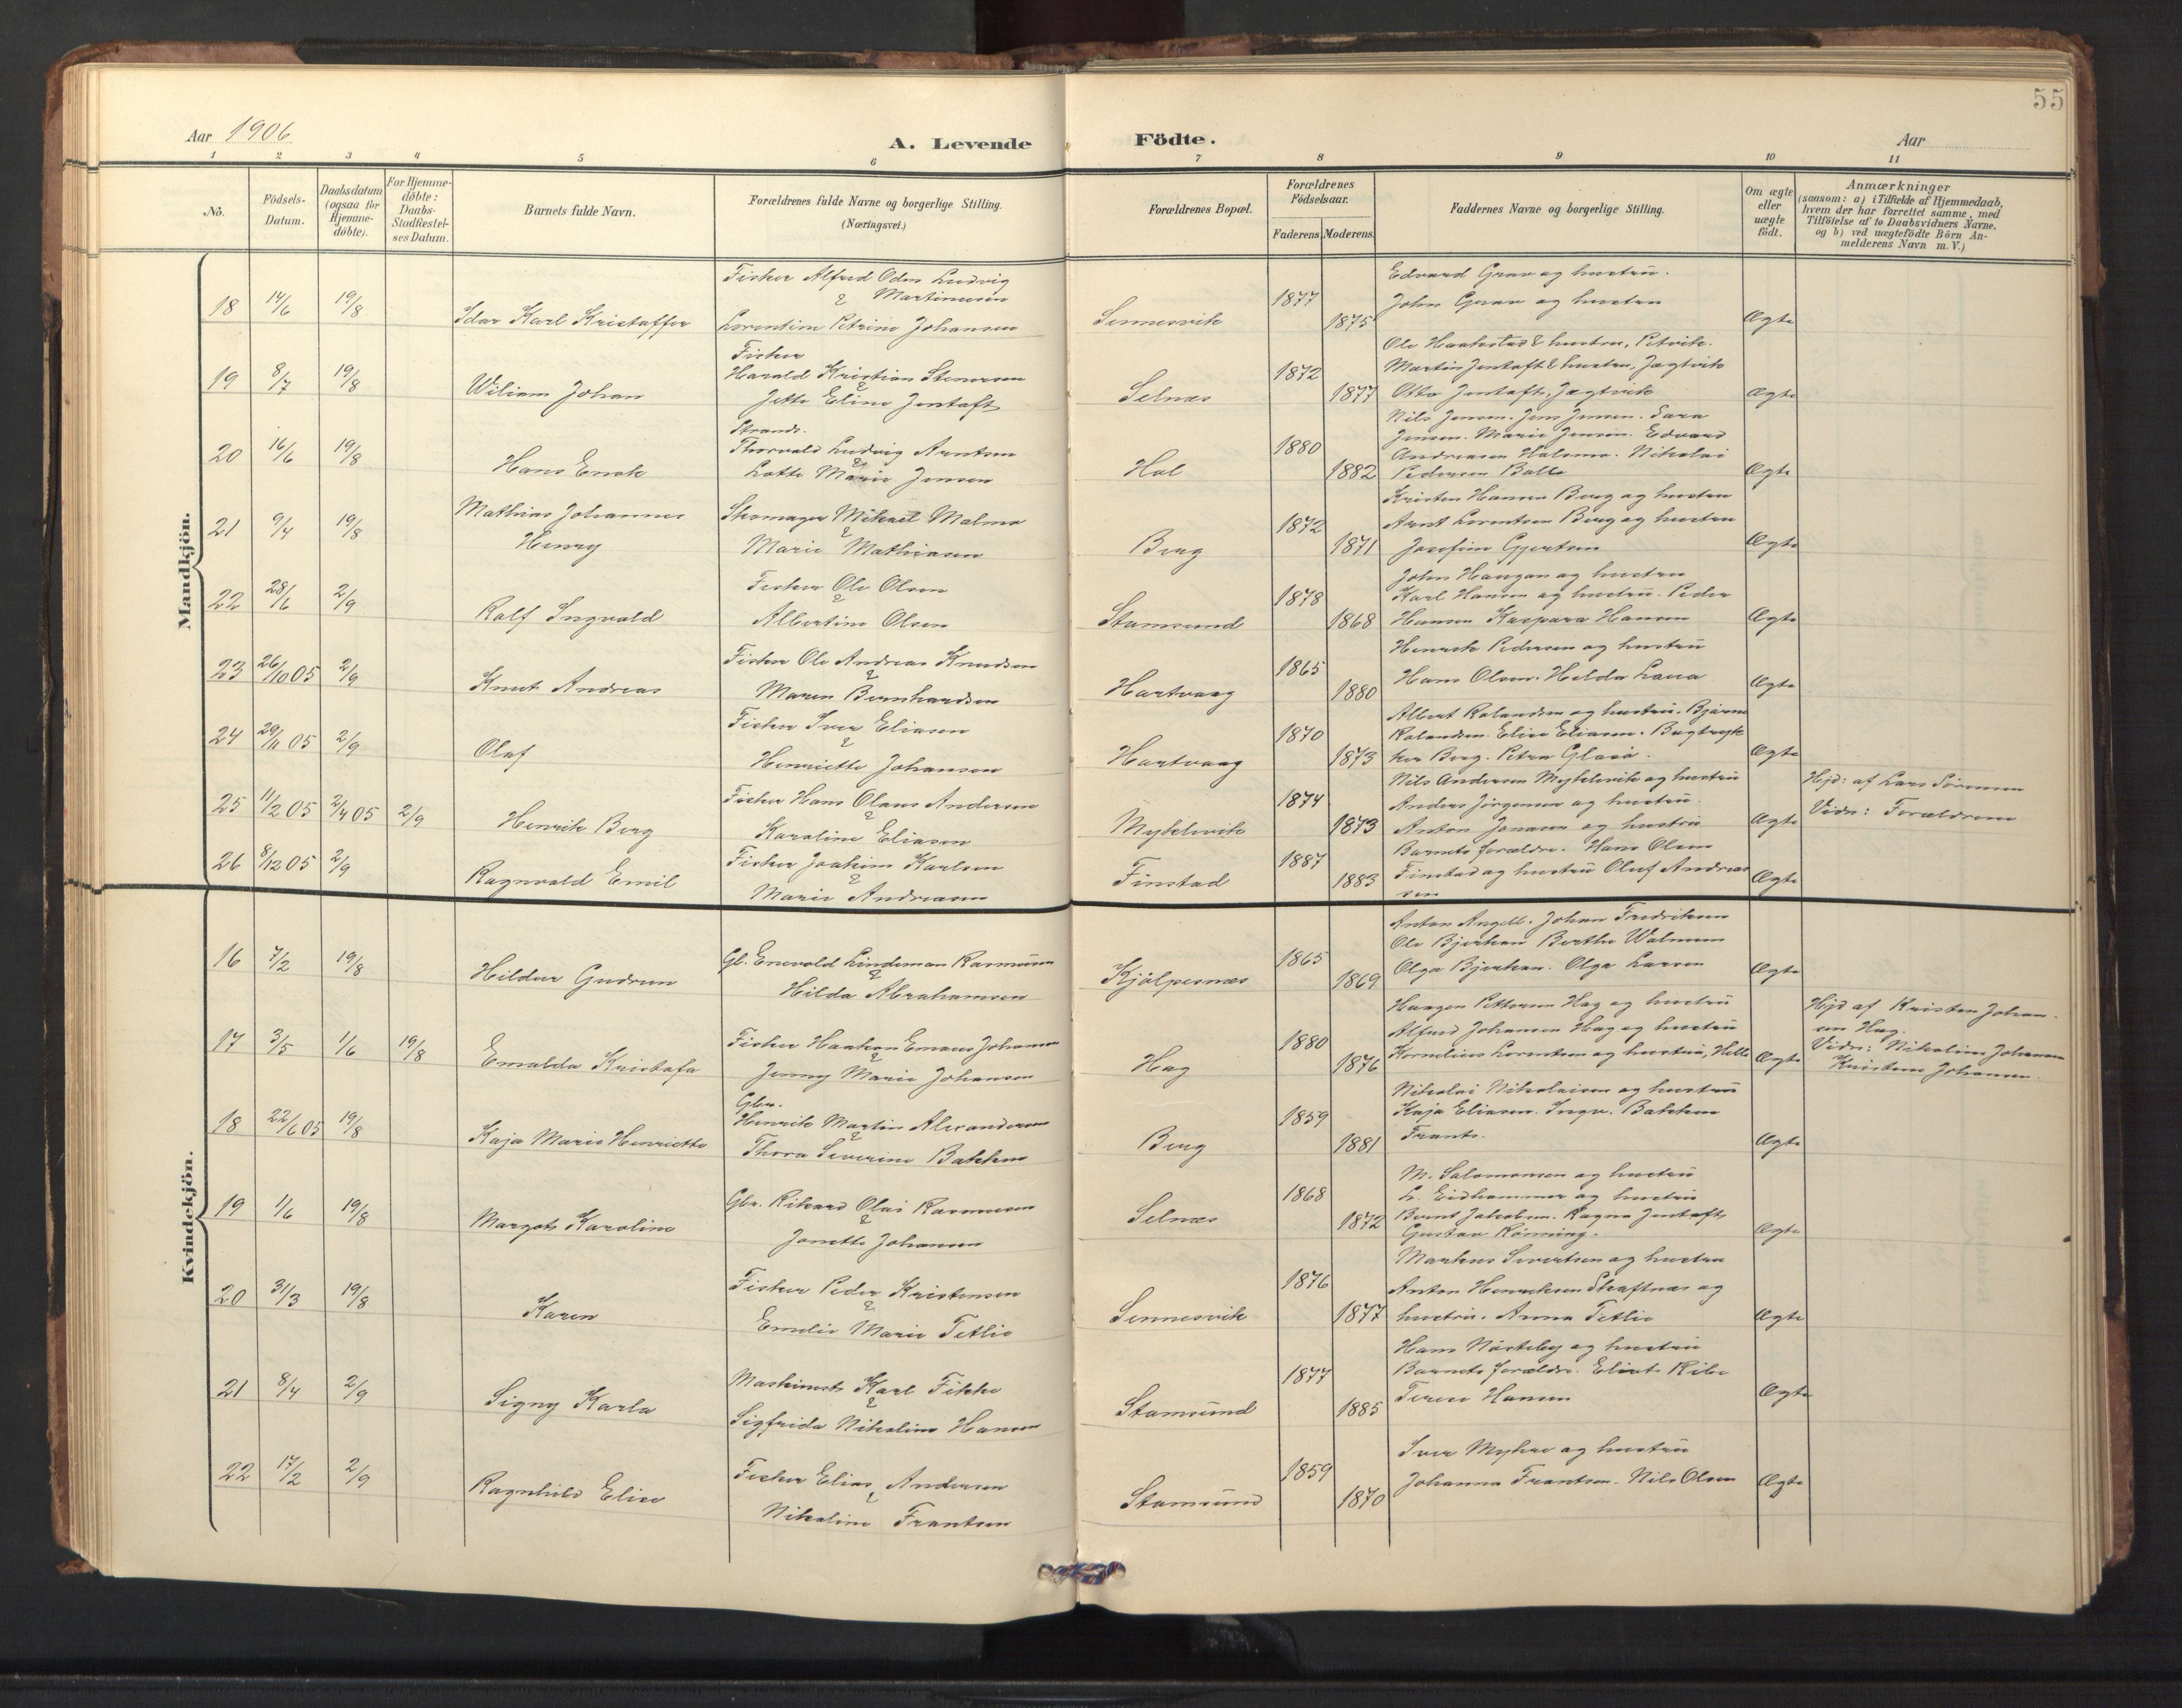 55
Aar 1906
A. Levende Födte.
Aar
1 2 3 4 5 6 7 8 9 10 11
No.
Födsels-
Datum.
Daabsdatum
(ogsaa for
Hjemme-
döbte).
For Hjemme-
döbte:
Daabs-
Stadfæstel-
ses Datum.
Barnets fulde Navn.
Forældrenes fulde Navne og borgerlige Stilling.
(Næringsvei.)
Forældrenes Bopæl.
Forældrenes
Födselsaar.
Faderens Moderens
Faddernes Navne og borgerlige Stilling.
Om ægte
eller
uægte
födt.
Anmærkninger
(saasom: a) i Tilfælde af Hjemmedaab,
hvem der har forrettet samme, med
Tilföielse af to Daabsvidners Navne.
og b) ved uægtefödte Börn An-
melderens Navn m. V.)
Mandkjön.
18 14/6 19/8
Idar Karl Kristoffer
Fisker Alfred Odin Ludvig
& Martinusen
Lorentine Petrine Johansen
Sennesvik
1877
1875
Edvard Grav og hustru.
John Grav og hustru
Ægte
19 8/7 19/8
Wiliam Johan
Fisker
Harald Kristian Stenersen
&
Jette Eline Jentoft
Selnes
1872
1877
Ole Haakestad & hustru, Petvik.
Martin Jentoft & hustru, Jagtvik
Otto Jentoft, Jagtvik
Ægte
20 16/6 19/8
Hans Enok
Strands.
Thorvald Ludvig Arntsen
&
Lotte Marie Jensen
Hol
1880
1882
Nils Jensen. Jens Jensen. Sara
Jensen. Marie Jensen. Edvard
Andreasen Holsmo. Nikolai
Pedersen Balle
Ægte
21 9/4 19/8
Mathias Johannes
Henry
Skomager Mikael Malmo
&
Marie Mathiasen
Berg
1872
1871
Kristen Hansen Berg og hustru
Arnt Lorentsen Berg og hustru
Josefine Gjertsen
Ægte
22 28/6 2/9
Rolf Ingvald
Fisker Ole Olsen
&
Albertine Olsen
Stamsund
1878
1868
John Haugan og hustru
Karl Hansen og hustru. Peder
Hansen Kaspara Hansen
Ægte
23 26/10 05 2/9
Knut Andreas
Fisker Ole Andreas Knudsen
&
Maren Bernhardsen
Hartvaag
1865
1880
Henrik Pedersen og hustru
Hans Olsen. Hilda Laua
Ægte
24 29/11 05 2/9
Olaf
Fisker Iver Eliasen
&
Henriette Johansen
Hartvaag
1870
1873
Albert Rolandsen og hustru. Bjarne
Rolandsen. Elise Eliasen. Bogtryk
ker Berg. Petra Glasö.
Ægte
25 11/2 05 2/4 05 2/9
Henrik Berg
Fisker Hans Olaus Andersen
&
Karoline Eliasen
Myklevik
1874
1873
Nils Andersen Myklevik og hustru
Anders Jörgensen og hustru.
Anton Jonasen og hustru
Ægte
Hjd: af Lars Sörensen
Vidn: Forældrene
26 8/12 05 2/9
Ragnvald Emil
Fisker Joakim Karlsen
&
Marie Andreasen
Finstad
1887
1883
Barnets forældre. Hans Olsen
Finstad og hustru Oluf Andreas
sen
Ægte
Kvindekjön.
16 7/2 19/8
Hildur Gudrun
Gb. Enevold Lindeman Rasmussen
&
Hilda Abrahamsen
Kjölpesnæs
1865
1869
Anton Angell. Johan Fredriksen
Ole Bjerkan Berthe Walnum
Olga Bjerkan. Olga Larsen
Ægte
17 3/5 1/6 19/8
Emalda Kristofa
Fisker Haakon Emaus Johansen
&
Jenny Marie Johansen
Hag
1880
1876
Haagen Pettersen Hag og hustru
Alfred Johansen Hag og hustru
Kornelius Lorentsen og hustru, Helle
Ægte
Hjd af Kristen Johan-
sen Hag.
Vidn: Nikoline Johansen
Kristine Johansen.
18 22/6 05 19/8
Kaja Marie Henriette
Gbr.
Henrik Martin Alexandersen
&
Thora Severine Bakken
Berg
1859
1881
Nikolai Nikolaisen og hustru
Kaja Eliasen. Ingv. Bakken
Frants.
Ægte
19 1/6 19/8
Margot Karoline
Gbr. Rikard Olai Rasmussen
&
Jonette Johansen
Selnes
1868
1872
M. Salomonsen og hustru
L. Eidhammer og hustru
Bernt Jakobsen. Ragna Jentoft
Gustav Rönning.
Ægte
20 31/3 19/8
Karen
Fisker Peder Kristensen
&
Emelie Marie Tetlie
Sennesvik
1876
1877
Markus Sivertsen og hustru
Anton Henriksen Skaftnes og
hustru. Anna Tetlie
Ægte
21 8/4 2/9
Signy Karla
Maskinist Karl Fikke
&
Sigfrida Nikoline Hansen
Stamsund
1877
1885
Hans Nösteby og hustru
Barnets forældre. Elias Ribe
Terese Hansen
Ægte
22 17/2 2/9
Ragnhild Elise
Fisker Elias Andersen
&
Nikoline Frantsen
Stamsund
1859
1870
Iver Myhre og hustru
Johanna Frantsen. Nils Olsen
Ægte